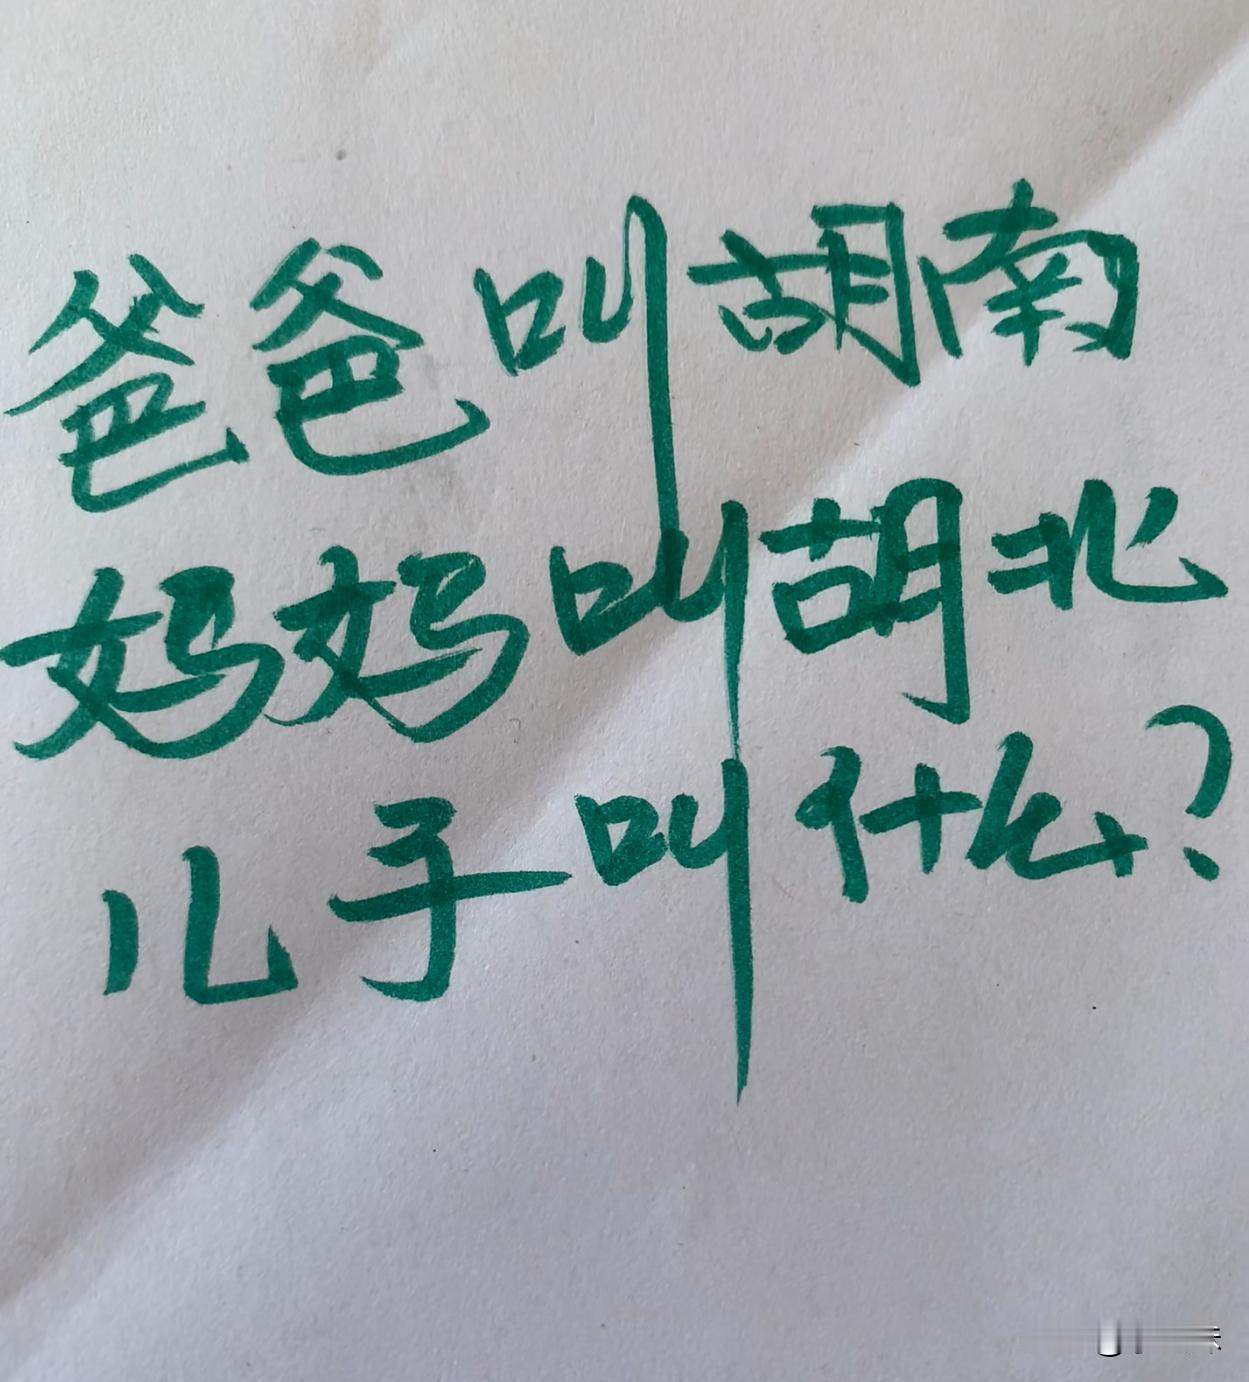 爸爸叫胡南
妈妈叫胡北
儿子叫什么?